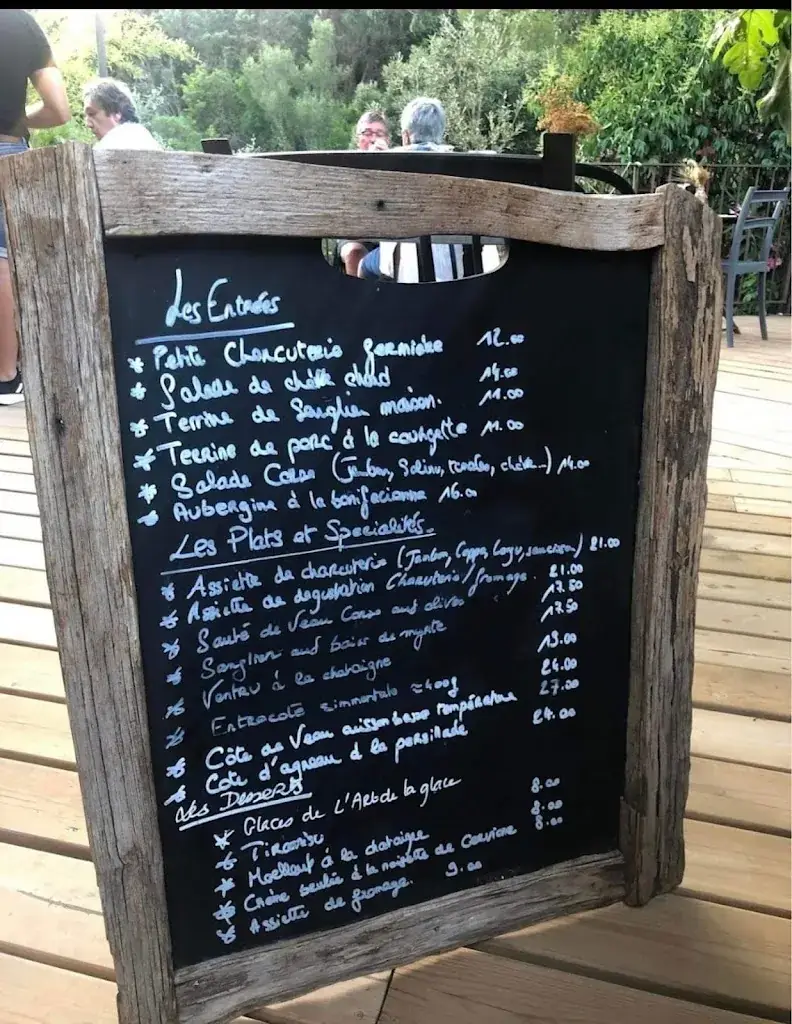 Les Entrées
* Petite Charcuterie fermière 12.00
* Salade de chèvre chaud 14.00
* Terrine de Sanglier maison. 11.00
* Terrine de porc à la courgette 11.00
* Salade Corse (Jambon, Salami, tomates, chèvre...) 14.00
* Aubergine à la bonifacienne 16.00
Les Plats et Specialités.
* Assiette de charcuterie (Jambon, Coppa, Lonzu, saucisson) 21.00
* Assiette de degustation Charcuterie/fromage. 21.00
* Sauté de Veau Corse aux olives 17.50
* Sanglier aux baies de myrte 17.50
* Ventru à la chataigne 19.00
* Entrecote simmentale ≈400g 24.00
* Côte de Veau cuisson basse température 27.00
* Cote d'agneau à la persillade 24.00
Les Desserts
* Glaces de L'Art de la glace
* Tiramisu 8.00
* Moelleux à la chataigne 8.00
* Crème brulée à la noisette de Cervione 8.00
* Assiette de fromage. 9.00